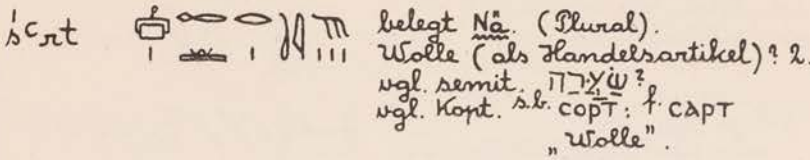 śꜥrt belegt Nä. (Plural).
Wolle (als Handelsartikel)? 2.
vgl. semit. שׂערה?
vgl. Kopt. s.b. ⲥⲟⲣⲧ: f. ⲥⲁⲣⲧ
„Wolle".